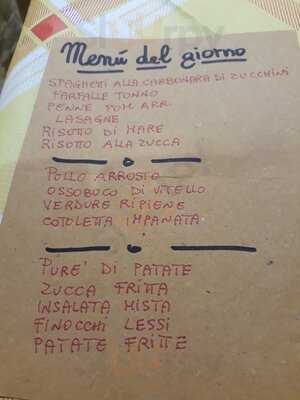 Menú del giorno
SPAGHETTI ALLA CARBONARA DI ZUCCHINE
FARFALLE TONNO
PENNE POM. ARR.
LASAGNE
RISOTTO DI MARE
RISOTTO ALLA ZUCCA
POLLO ARROSTO
OSSOBUCO DI VITELLO
VERDURE RIPIENE
COTOLETTA IMPANATA
PURE' DI PATATE
ZUCCA FRITTA
INSALATA MISTA
FINOCCHI LESSI
PATATE FRITTE